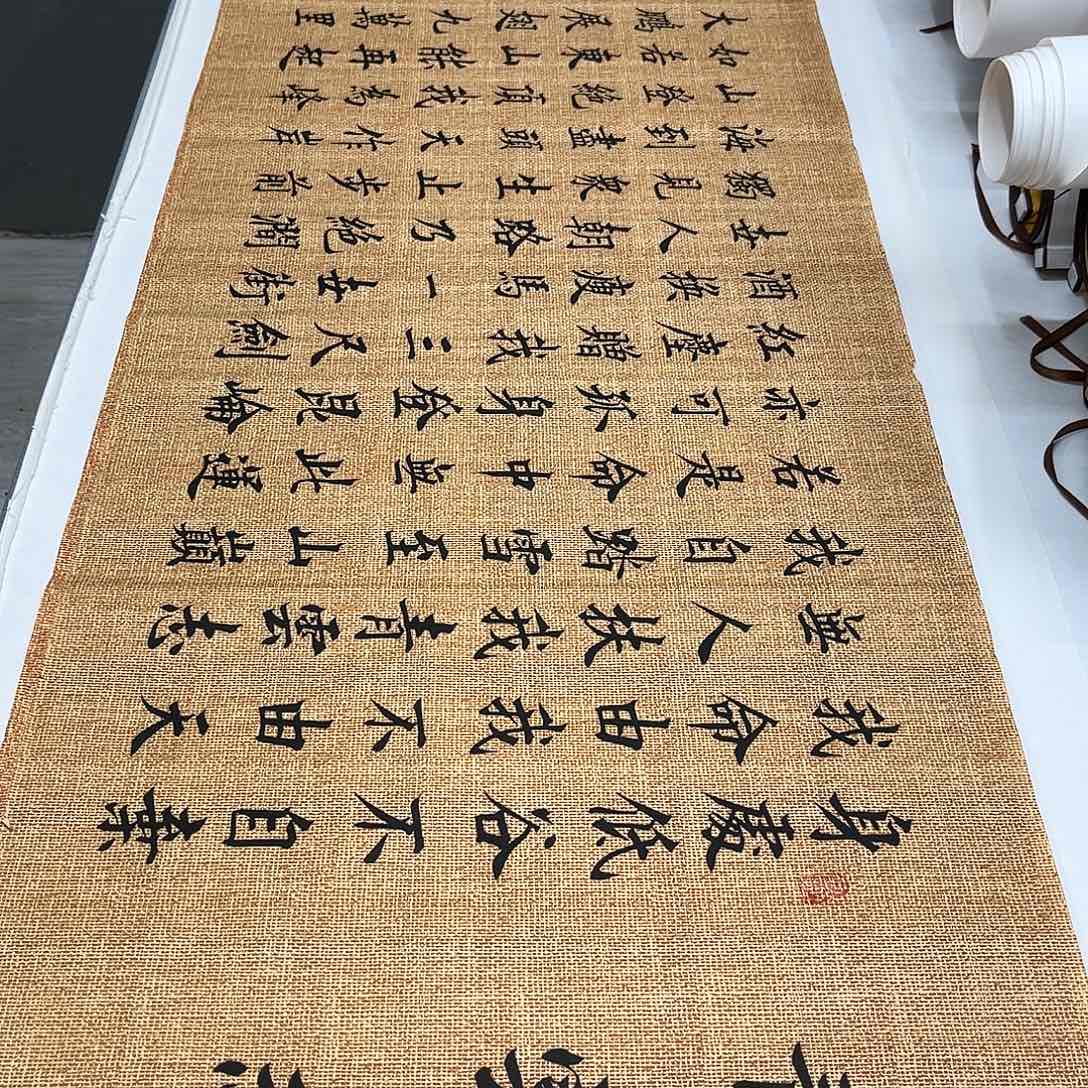 身處低谷不自棄
我命由我不由天
無人扶我青雲志
我自踏雪至山巔
若是命中無此運
亦可孤身登昆崙
紅塵贈我三尺劍
酒換瘦馬一世街
世人朝路乃絕澗
獨見衆生止步前
海到盡頭天作岸
山登絕頂我為峰
如若東山能再起
大鵬展翅九萬里